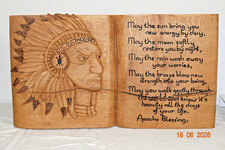 May the sun bring you
new energy by day,
May the moon softly
restore you by night,
May the rain wash away
your worries,
May the breeze blow new
strength into your being.
May you walk gently through
the world and know it's
beauty all the days
of your life.
Apache Blessing.
16 06 2026